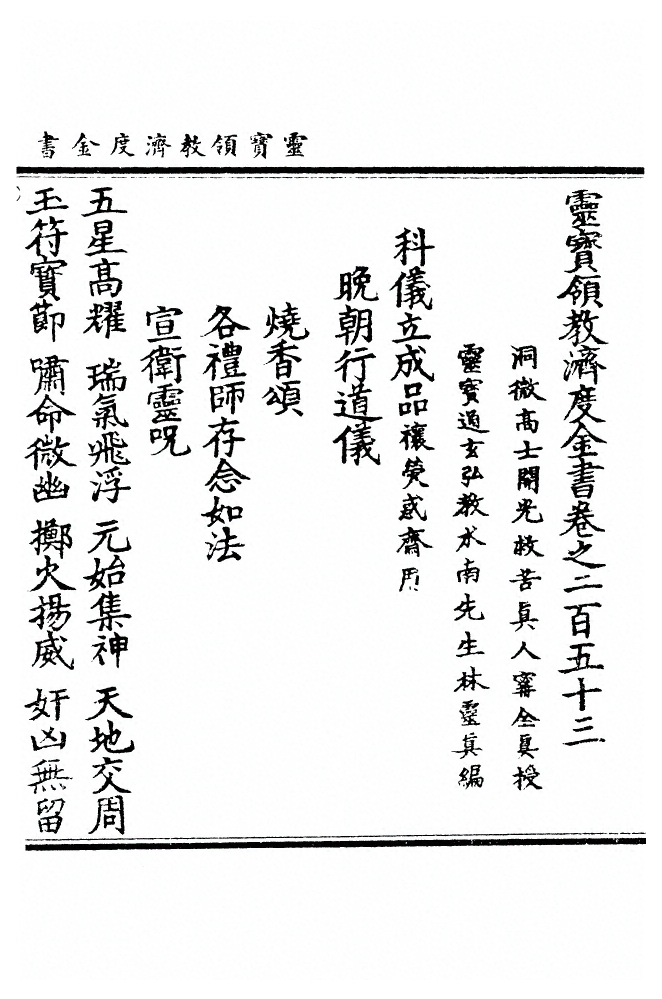 靈寶領教濟度金書
靈寶領教濟度金書卷之二百五十三
洞微高士開光救苦眞人寗全眞授
靈寶通玄弘教水南先生林靈眞編
科儀立成品禳熒惑齋用
晚朝行道儀
燒香頌
各禮師存念如法
宣衛靈呪
五星高耀 瑞氣飛浮 元始集神 天地交周
玉符寶節 嘯命微幽 擲火揚威 奸凶無留